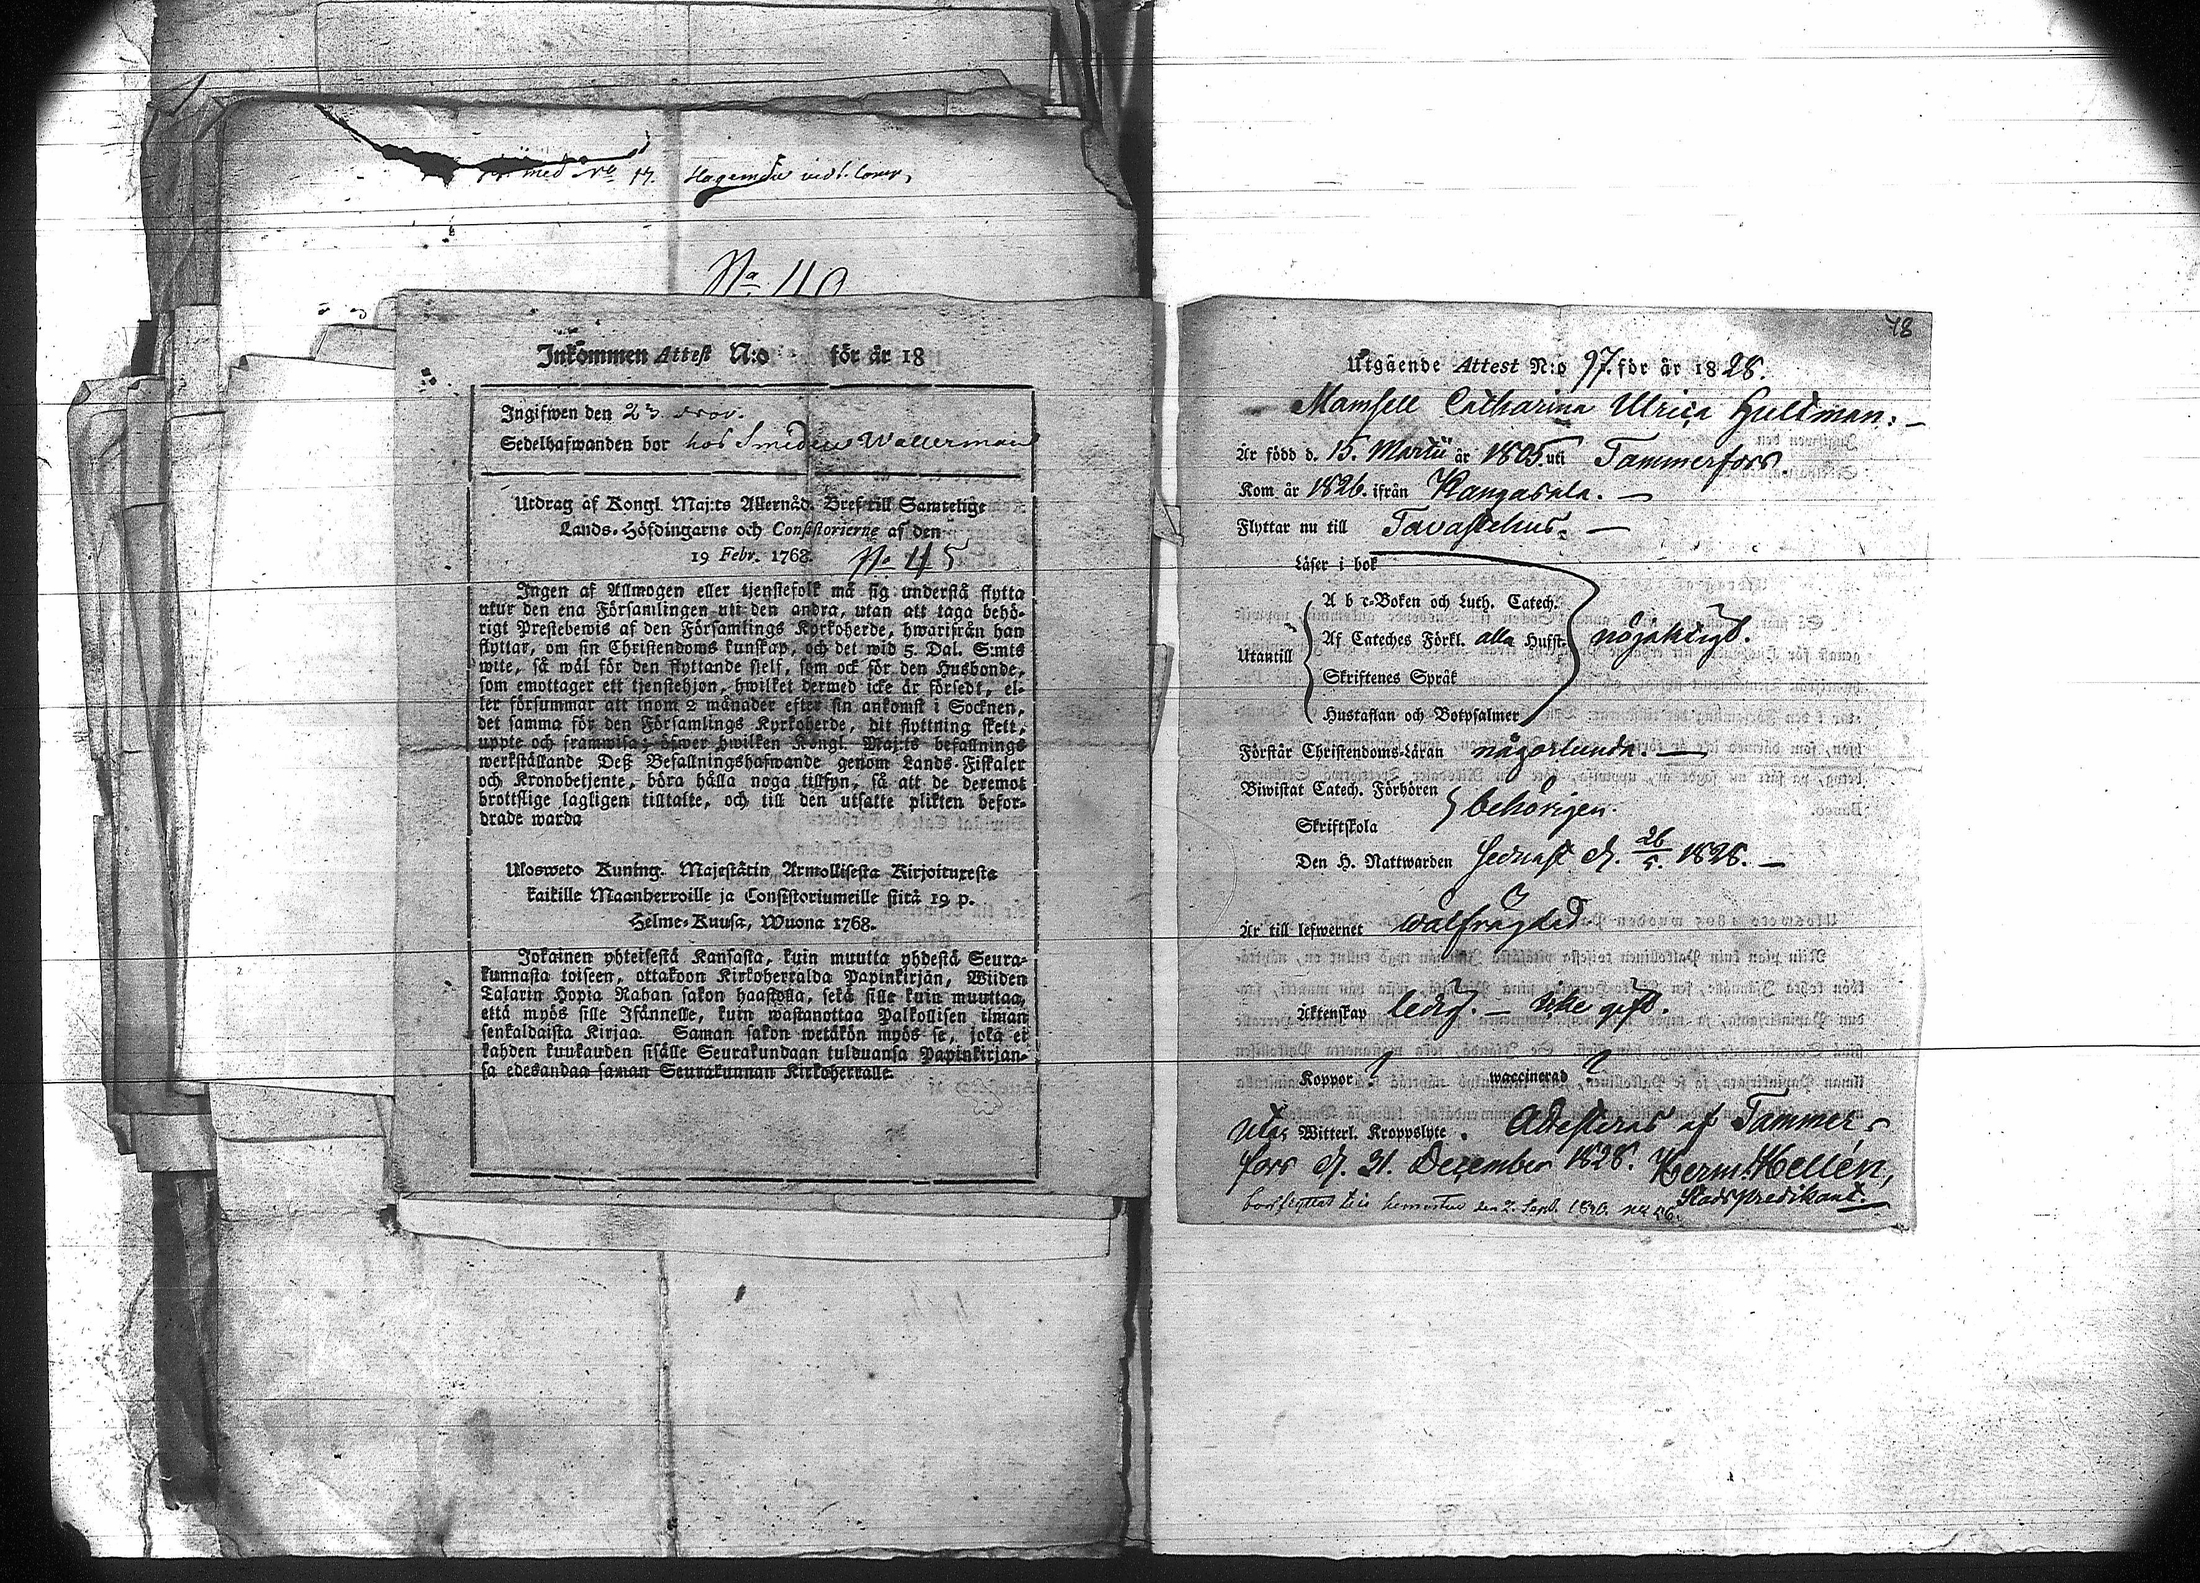 med No 17.
No 40
Inkommen Attest N:o för år 18
Ingifwen den 23. Nov.
Sedelhafwanden bor hos Smeden Wallerman
Utdrag af Kongl. Maj:ts Allernåd. Bref till Samtelige
Lands-Höfdingarne och Consistorierne af den
19 Febr. 1768.
No. 45
Ingen af Allmogen eller tjenstefolk må sig understå flytta
utur den ena Församlingen uti den andra, utan att taga behö-
rigt Prestebewis af den Församlings Kyrkoherde, hwarifrån han
flyttar, om sin Christendoms kunskap, och det wid 5. Dal. S:mts
wite, så wäl för den flyttande sjelf, som ock för den Husbonde,
som emottager ett tjenstehjon, hwilket dermed icke är försedt, el-
ler försummar att inom 2 månader efter sin ankomst i Socknen,
det samma för den Församlings Kyrkoherde, dit flyttning skett,
uppte och framwisa; öfwer hwilken Kongl. Maj:ts befallnings
werkställande Deß Befallningshafwande genom Lands-Fiskaler
och Kronobetjente, böra hålla noga tillsyn, så att de deremot
brottslige lagligen tilltalte, och till den utsatte plikten befor-
drade warda
Ulosweto Kuning. Majestätin Armollisesta Kirjoituxesta
kaikille Maanherroille ja Consistoriumeille siitä 19 p.
Helme-Kuusa, Wuona 1768.
Jokainen yhteisestä Kansasta, kuin muutta yhdestä Seura-
kunnasta toiseen, ottakoon Kirkoherralda Papinkirjan, Wiiden
Talarin Hopia Rahan sakon haastolla, sekä sille kuin muuttaa,
että myös sille Isännelle, kuin wastanottaa Palkollisen ilman
senkaldaista Kirjaa. Saman sakon wetäkön myös se, joka ei
kahden kuukauden sisälle Seurakundaan tulduansa Papinkirjan-
sa edesandaa saman Seurakunnan Kirkoherralle.
48
Utgående Attest N:o 97. för år 1828.
Mamsell Catharina Ulrica Hultman:
Är född d. 15. Martii år 1805. uti Tammerfors.
Kom år 1826. ifrån Kangasala.
Flyttar nu till Tavastehus.
Läser i bok
A b c-Boken och Luth. Catech.
Utantill Af Cateches Förkl. alla Hufst. nöjaktigt.
Skriftenes Språk
Hustaflan och Botpsalmer
Förstår Christendoms-Läran någorlunda.
Biwistat Catech. Förhören
behörigen.
Skriftskola
Den H. Nattwarden sednast d. 26/5. 1828.
Är till lefwernet wälfrägdad
Äktenskap ledig. icke gift.
Koppor ? waccinerad ?
utan Witterl. Kroppslyte. Attesteras af Tammer-
fors d. 31. December 1828. Herm. Hellén,
Stadspredikant.
den 2. Sept. 1830. No 46.